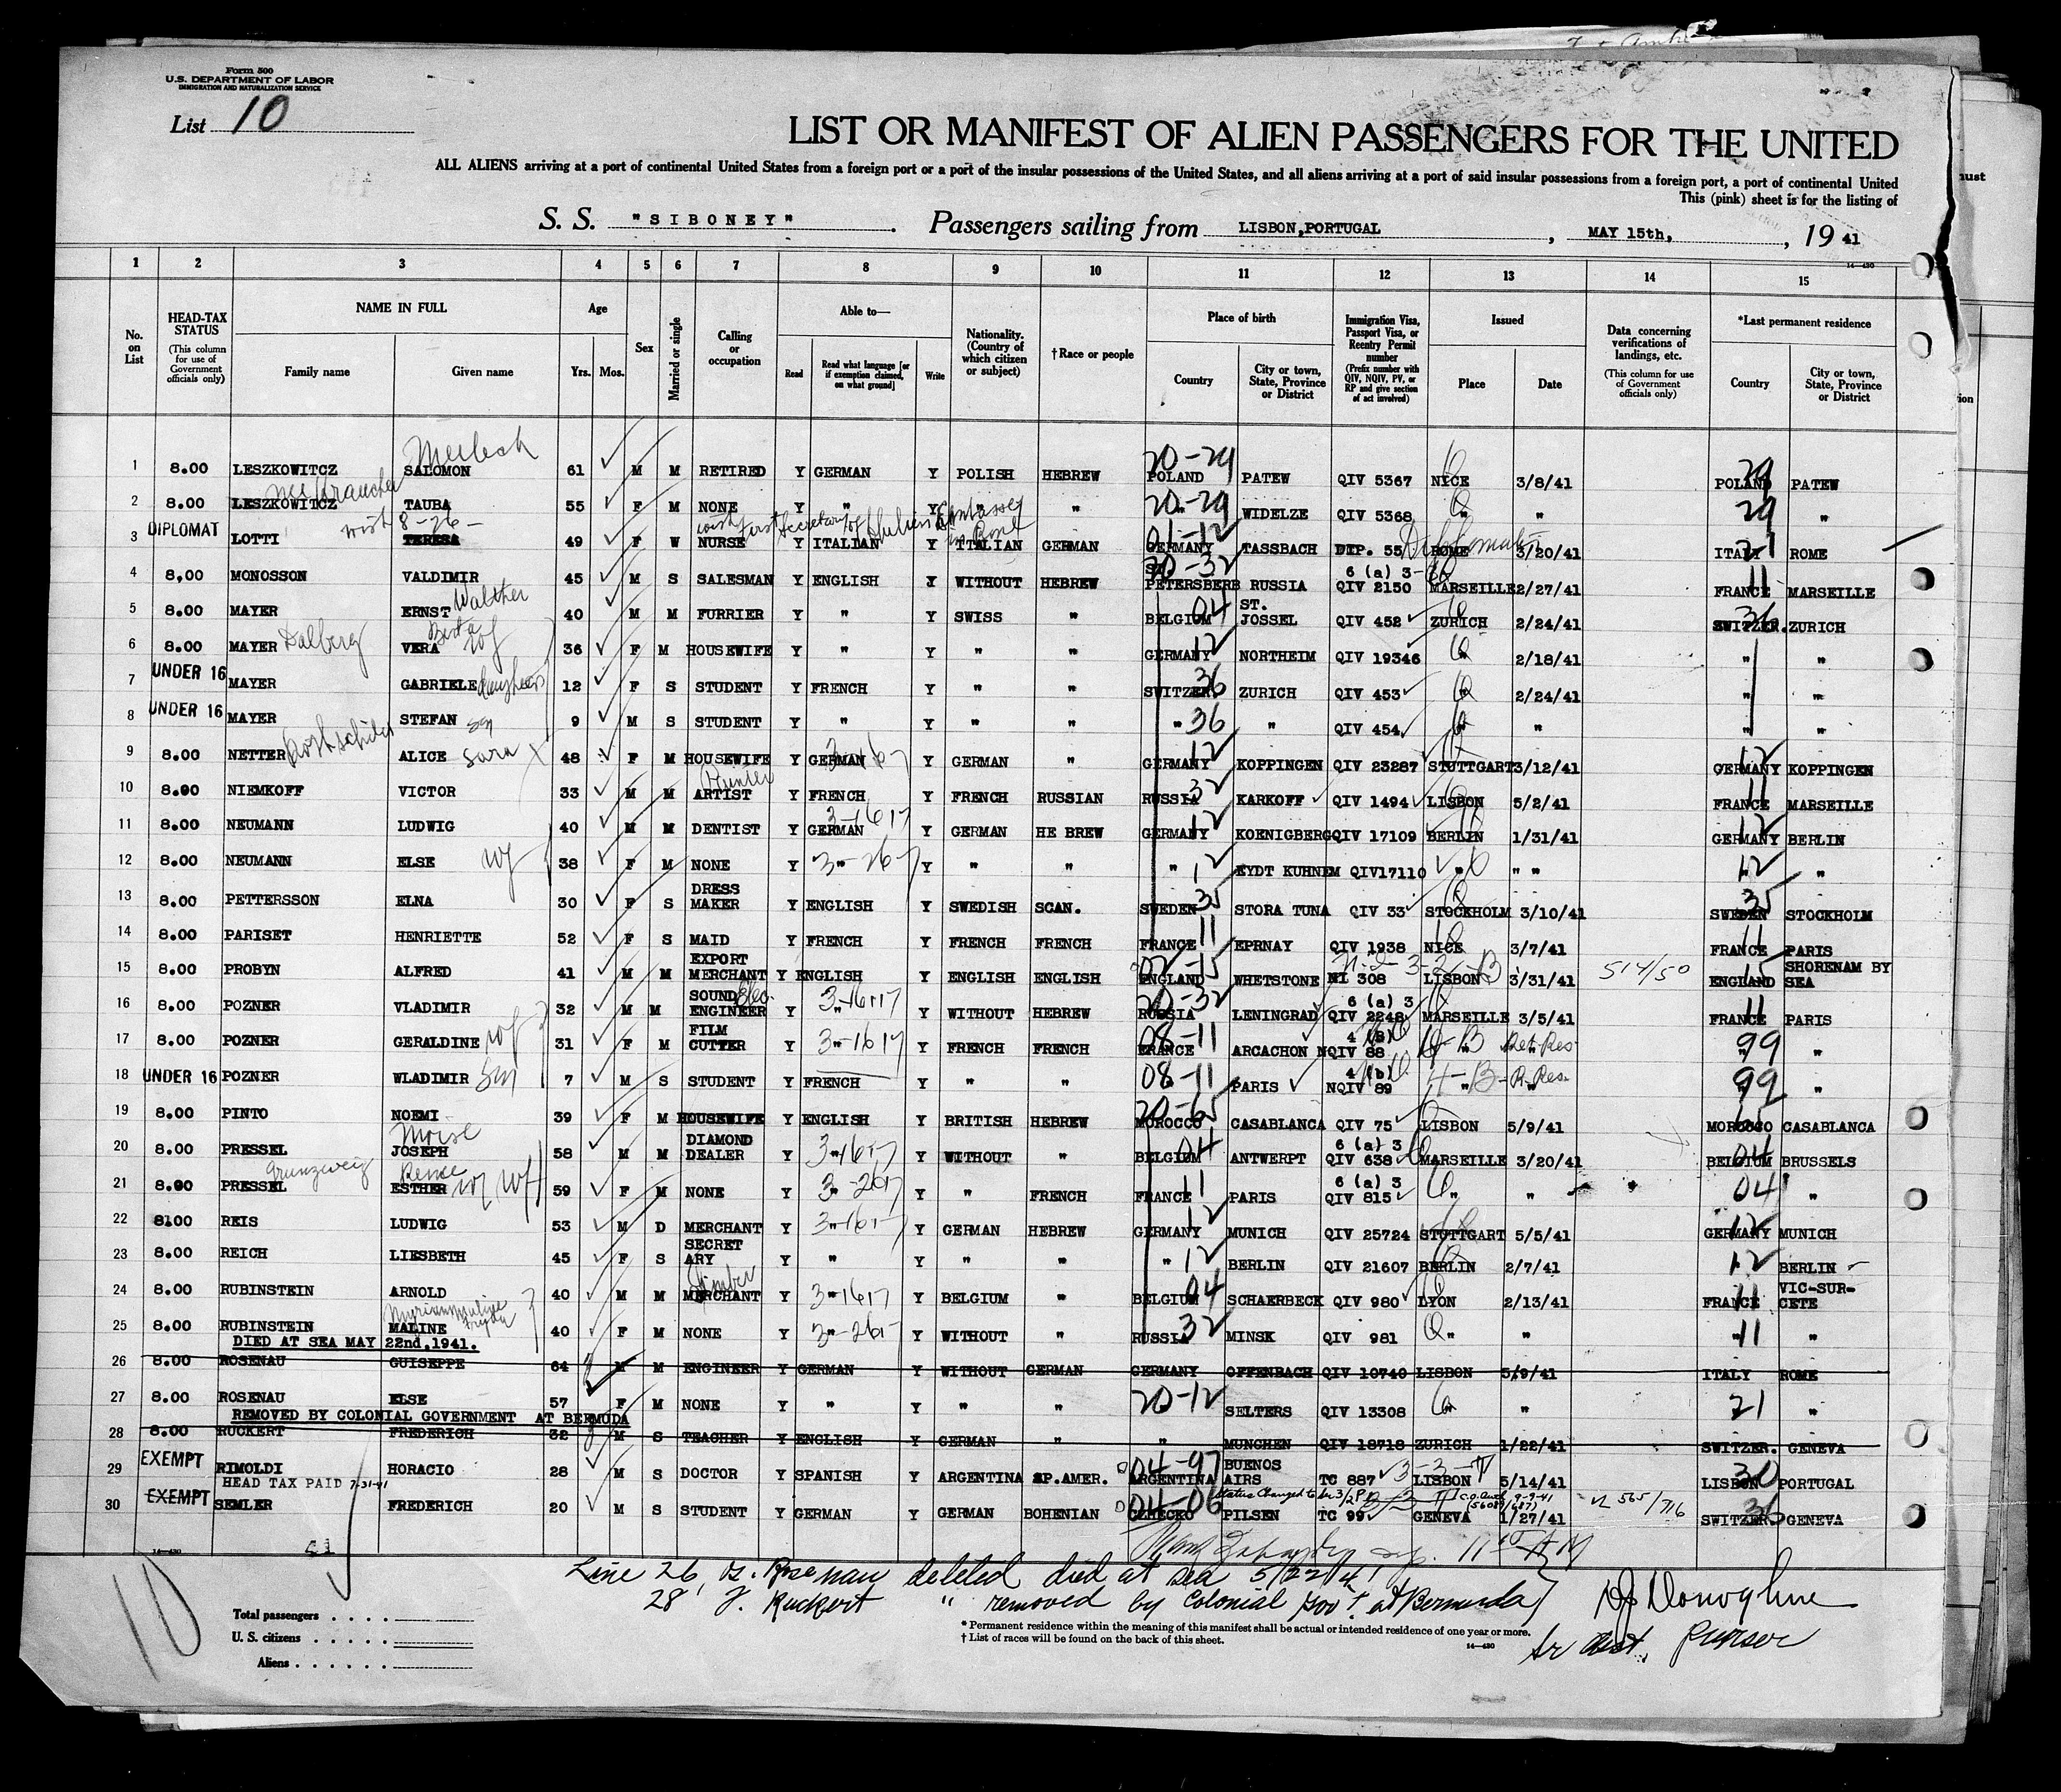 Form 500
U.S. DEPARTMENT OF LABOR
IMMIGRATION AND NATURALIZATION SERVICE
List 10
LIST OR MANIFEST OF ALIEN PASSENGERS FOR THE UNITED
ALL ALIENS arriving at a port of continental United States from a foreign port or a port of the insular possessions of the United States, and all aliens arriving at a port of said insular possessions from a foreign port, a port of continental United
This (pink) sheet is for the listing of
S. S. "SIBONEY" Passengers sailing from LISBON, PORTUGAL, MAY 15th, 19 41
1 2 3 4 5 6 7 8 9 10 11 12 13 14 15
No. on List
HEAD-TAX STATUS (This column for use of Government officials only)
NAME IN FULL Family name Given name
Age Yrs. Mos.
Sex
Married or single
Calling or occupation
Able to— Read Read what language [or if exemption claimed, on what ground] Write
Nationality. (Country of which citizen or subject)
†Race or people
Place of birth Country City or town, State, Province or District
Immigration Visa, Passport Visa, or Reentry Permit number (Prefix number with QIV, NQIV, PV, or RP and give section of act involved)
Issued Place Date
Data concerning verifications of landings, etc. (This column for use of Government officials only)
*Last permanent residence Country City or town, State, Province or District
1 8.00 LESZKOWITCZ SALOMON 61 M M RETIRED Y GERMAN Y POLISH HEBREW 20-29 POLAND PATEW QIV 5367 NICE 3/8/41 29 POLAND PATEW
2 8.00 LESZKOWITCZ TAUBA 55 F M NONE Y " Y " " 20-29 " WIDELZE QIV 5368 " " 29 "
3 DIPLOMAT LOTTI TERESA 49 F W NURSE Y ITALIAN Y ITALIAN GERMAN 01-12 GERMANY TASSBACH DIP. 55 ROME 3/20/41 ITALY 21 ROME
4 8,00 MONOSSON VALDIMIR 45 M S SALESMAN Y ENGLISH Y WITHOUT HEBREW 20-32 ST. PETERSBERG RUSSIA 6 (a) 3 QIV 2150 MARSEILLE 2/27/41 FRANCE 11 MARSEILLE
5 8.00 MAYER ERNST Walther 40 M M FURRIER Y " Y SWISS " BELGIUM 04 ST. JOSSEL QIV 452 ZURICH 2/24/41 36 SWITZER. ZURICH
6 8.00 MAYER Dalberg VERA wf 36 F M HOUSEWIFE Y " Y " " GERMANY 12 NORTHEIM QIV 19346 " 2/18/41 " "
7 UNDER 16 MAYER GABRIELE daughter 12 F S STUDENT Y FRENCH Y " " SWITZER 36 ZURICH QIV 453 " 2/24/41 " "
8 UNDER 16 MAYER STEFAN sn 9 M S STUDENT Y " Y " " " 36 " QIV 454 " " " "
9 8.00 NETTER Rothschild ALICE Sara X 48 F M HOUSEWIFE Y GERMAN Y GERMAN " GERMANY 12 KOPPINGEN QIV 23287 STUTTGART 3/12/41 12 GERMANY KOPPINGEN
10 8.00 NIEMKOFF VICTOR 33 M M ARTIST Y FRENCH Y FRENCH RUSSIAN RUSSIA 32 KARKOFF QIV 1494 LISBON 5/2/41 11 FRANCE MARSEILLE
11 8.00 NEUMANN LUDWIG 40 M M DENTIST Y GERMAN Y GERMAN HE BREW GERMANY 12 KOENIGBERG QIV 17109 BERLIN 1/31/41 12 GERMANY BERLIN
12 8.00 NEUMANN ELSE wf 38 F M NONE Y " Y " " " 12 EYDT KUHNEM QIV17110 " " " 12 "
13 8.00 PETTERSSON ELNA 30 F S DRESS MAKER Y ENGLISH Y SWEDISH SCAN. SWEDEN 35 STORA TUNA QIV 33 STOCKHOLM 3/10/41 35 SWEDEN STOCKHOLM
14 8.00 PARISET HENRIETTE 52 F S MAID Y FRENCH Y FRENCH FRENCH FRANCE 11 EPRNAY QIV 1938 NICE 3/7/41 11 FRANCE PARIS
15 8.00 PROBYN ALFRED 41 M M EXPORT MERCHANT Y ENGLISH Y ENGLISH ENGLISH 02-15 ENGLAND WHETSTONE NI 308 LISBON 3/31/41 514/50 15 ENGLAND SHORENAM BY SEA
16 8.00 POZNER VLADIMIR 32 M M SOUND ENGINEER Y " Y WITHOUT HEBREW 20-32 RUSSIA LENINGRAD 6 (a) 3 QIV 2248 MARSEILLE 3/5/41 11 FRANCE PARIS
17 8.00 POZNER GERALDINE wf 31 F M FILM CUTTER Y " Y FRENCH FRENCH 08-11 FRANCE ARCACHON 4 (b) NQIV 88 " " 99 " "
18 UNDER 16 POZNER WLADIMIR Sn 7 M S STUDENT Y FRENCH Y " " 08-11 PARIS 4 (b) NQIV 89 " " 99 " "
19 8.00 PINTO NOEMI 39 F M HOUSEWIFE Y ENGLISH Y BRITISH HEBREW 20-65 MOROCCO CASABLANCA QIV 75 LISBON 5/9/41 65 MOROCCO CASABLANCA
20 8.00 PRESSEL Moise JOSEPH 58 M M DIAMOND DEALER Y " Y WITHOUT " BELGIUM 04 ANTWERPT 6 (a) 3 QIV 638 MARSEILLE 3/20/41 04 BELGIUM BRUSSELS
21 8.00 PRESSEL ESTHER wf 59 F M NONE Y " Y " FRENCH FRANCE 11 PARIS 6 (a) 3 QIV 815 " " 04 "
22 8100 REIS LUDWIG 53 M D MERCHANT Y " Y GERMAN HEBREW GERMANY 12 MUNICH QIV 25724 STUTTGART 5/5/41 12 GERMANY MUNICH
23 8.00 REICH LIESBETH 45 F S SECRET ARY Y " Y " " " 12 BERLIN QIV 21607 BERLIN 2/7/41 12 BERLIN
24 8.00 RUBINSTEIN ARNOLD 40 M M MERCHANT Y " Y BELGIUM " BELGIUM 04 SCHAERBECK QIV 980 LYON 2/13/41 11 FRANCE VIC-SUR-CETE
25 8.00 RUBINSTEIN MALINE 40 F M NONE Y " Y WITHOUT " RUSSIA 32 MINSK QIV 981 " " " 11 "
DIED AT SEA MAY 22nd,1941.
26 8.00 ROSENAU GUISEPPE 64 M M ENGINEER Y GERMAN Y WITHOUT GERMAN GERMANY OFFENBACH QIV 10740 LISBON 5/9/41 ITALY ROME
27 8.00 ROSENAU ELSE 57 F M NONE Y " Y " " 20-12 SELTERS QIV 13308 " " 21 "
REMOVED BY COLONIAL GOVERNMENT AT BERMUDA
28 8.00 RUCKERT FREDERICH 32 M S TEACHER Y ENGLISH Y GERMAN " " MUNCHEN QIV 18718 ZURICH 1/22/41 SWITZER. GENEVA
29 EXEMPT RIMOLDI HORACIO 28 M S DOCTOR Y SPANISH Y ARGENTINA SP.AMER. 04-97 ARGENTINA BUENOS AIRS TC 887 LISBON 5/14/41 30 LISBON PORTUGAL
HEAD TAX PAID 7-31-41
30 EXEMPT SEMLER FREDERICH 20 M S STUDENT Y GERMAN Y GERMAN BOHENIAN 04-06 CZHECKO PILSEN TC 99 GENEVA 1/27/41 565/716 36 SWITZER. GENEVA
14—430
41
10
Line 26, G. Rosenau deleted died at sea 5/22/41
28 F. Ruckert " removed by Colonial Gov't. at Bermuda
Total passengers
U. S. citizens
Aliens
* Permanent residence within the meaning of this manifest shall be actual or intended residence of one year or more.
† List of races will be found on the back of this sheet.
14—430
Purser